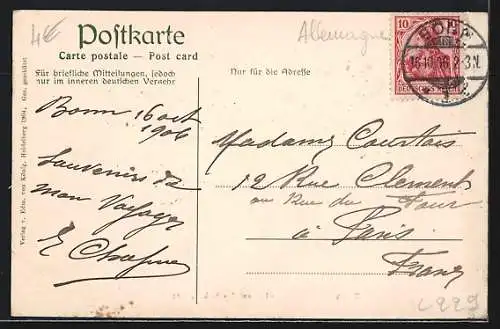 4€
Postkarte
Carte postale — Post card
Für briefliche Mitteilungen, jedoch
nur im inneren deutschen Verkehr
Allemagne
Nur für die Adresse
10
BONN
16.10.06. 2-3N.
DEUTSCHES REICH
Bonn 16 oct
1906
Souvenirs de
mon Voyage
Madame Courtois
12 Rue Clement
au Rue du Four
à Paris
France
Verlag v. Edm. von König, Heidelberg 1904. Ges. geschützt